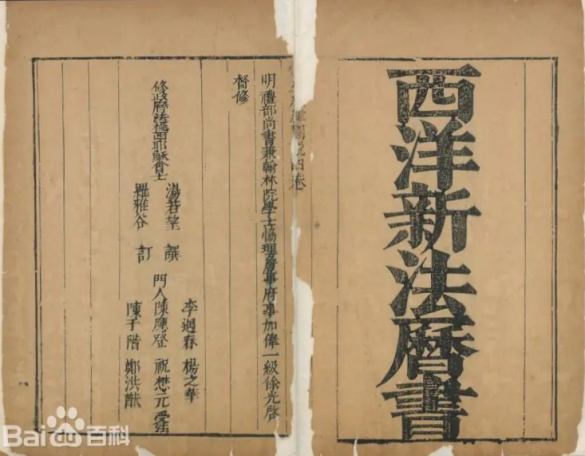 西洋新法曆書
明禮部尚書兼翰林院學士協理詹事府事加俸一級徐光啓
督修
修政曆法極西耶穌會士
湯若望 譔
羅雅谷 訂
李遇春 楊之華
門人陳應登 祝懋元 受法
陳于階 鄭洪猷
Bai 百科